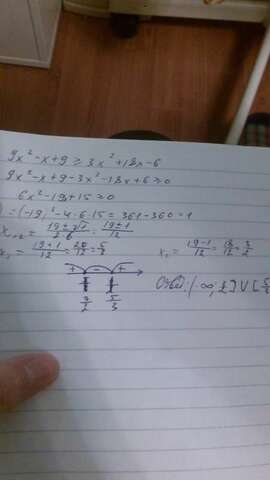 9x²-x+9 ≥ 3x²+18x-6
9x²-x+9-3x²-18x+6 ≥ 0
6x²-19x+15 ≥ 0
=(-19)²-4·6·15 = 361-360 = 1
x₁,₂ = (19±√1)/(2·6) = (19±1)/12
x₁ = (19+1)/12 = 20/12 = 5/3 x₂ = (19-1)/12 = 18/12 = 3/2
+ - +
3/2 5/3
Ответ: (-∞;